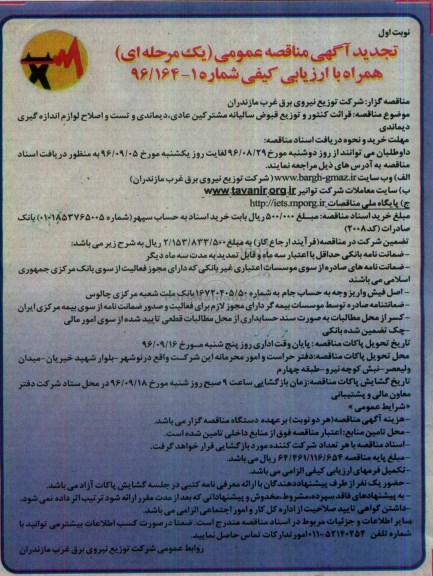 نوبت اول
تجدید آگهی مناقصه عمومی (یک مرحله ای)
همراه با ارزیابی کیفی شماره ۱-۹۶/۱۶۴
مناقصه گزار: شرکت توزیع نیروی برق غرب مازندران
موضوع مناقصه: قرائت کنتور و توزیع قبوض سالیانه مشترکین عادی، دیماندی و تست و اصلاح لوازم اندازه گیری
دیماندی
مهلت خرید و نحوه دریافت اسناد مناقصه:
داوطلبان می توانند از روز دوشنبه مورخ ۹۶/۰۸/۲۹ لغایت روز یکشنبه مورخ ۹۶/۰۹/۰۵ به منظور دریافت اسناد
مناقصه به آدرس های ذیل مراجعه نمایند.
الف) وب سایت www.bargh-gmaz.ir (شرکت توزیع نیروی برق غرب مازندران)
ب) سایت معاملات شرکت توانیر www.tavanir.org.ir
ج) پایگاه ملی مناقصات http://iets.mporg.ir
مبلغ خرید اسناد مناقصه: مبلغ ۵۰۰/۰۰۰ ریال بابت خرید اسناد به حساب سپهر (شماره ۰۱۰۱۸۵۳۷۶۵۰۰۵ بانک
صادرات (کد۲۰۰۸)
تضمین شرکت در مناقصه (فرآیند ارجاع کار) به مبلغ ۲/۱۵۳/۸۳۳/۵۰۰ ریال به شرح زیر می باشد:
- ضمانت نامه بانکی حداقل با اعتبار سه ماه و قابل تمدید به مدت سه ماه دیگر
- ضمانت نامه های صادره از سوی موسسات اعتباری غیر بانکی که دارای مجوز فعالیت از سوی بانک مرکزی جمهوری
اسلامی می باشند
- اصل فیش واریز وجه به حساب جام به شماره ۱۶۷۲۰۴۰۵/۵۰ بانک ملت شعبه مرکزی چالوس
- ضمانتنامه صادره توسط موسسات بیمه گر دارای مجوز لازم برای فعالیت و صدور ضمانت نامه از سوی بیمه مرکزی ایران
- کسر از محل مطالبات به صورت سند حسابداری از محل مطالبات قطعی تایید شده از سوی امور مالی
- چک تضمین شده بانکی
تاریخ تحویل پاکات مناقصه: پایان وقت اداری روز پنج شنبه مورخ ۹۶/۰۹/۱۶
محل تحویل پاکات مناقصه: دفتر حراست و امور محرمانه این شرکت واقع در نوشهر - بلوار شهید خیریان - میدان
ولیعصر - نبش کوچه نیرو - طبقه چهارم
تاریخ گشایش پاکات مناقصه: زمان بازگشایی ساعت ۹ صبح روز شنبه مورخ ۹۶/۰۹/۱۸ در محل ستاد شرکت دفتر
معاون مالی و پشتیبانی
«شرایط عمومی»
- هزینه آگهی مناقصه (هر دو نوبت) بر عهده دستگاه مناقصه گزار می باشد.
- محل تامین منابع: اعتبار مناقصه فوق از منابع داخلی تامین شده است.
- اسناد مناقصه با هر تعداد شرکت کننده مورد بازگشایی قرار خواهد گرفت.
- مبلغ پایه مناقصه ۶۲/۴۶۱/۱۱۶/۶۵۴ ریال می باشد.
- تکمیل فرمهای ارزیابی کیفی الزامی می باشد.
- حضور یک نفر از طرف پیشنهاد دهندگان با ارائه معرفی نامه کتبی در جلسه گشایش پاکات آزاد می باشد.
- به پیشنهادهای فاقد سپرده، مشروط، مخدوش و پیشنهاداتی که بعد از مدت مقرر ارائه شود ترتیب اثر داده نمی شود.
- داشتن گواهی تایید صلاحیت از اداره کل کار و امور اجتماعی الزامی می باشد.
سایر اطلاعات و جزئیات مربوط در اسناد مناقصه مندرج است. ضمنا در صورت کسب اطلاعات بیشتر می توانید با
شماره تلفن ۵۲۱۴۰۲۵۴-۰۱۱ امور تدارکات تماس حاصل نمایید.
روابط عمومی شرکت توزیع نیروی برق غرب مازندران